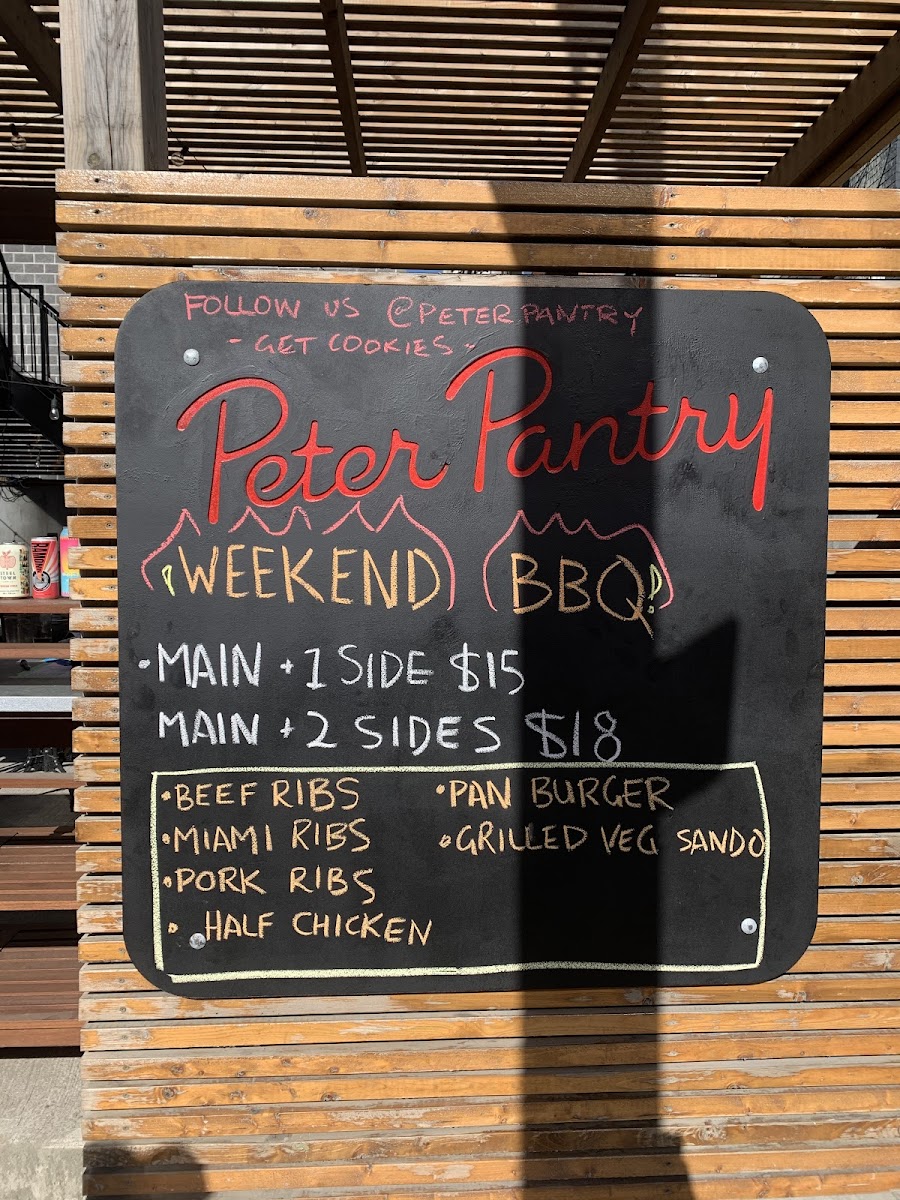 FOLLOW US @PETERPANTRY
- GET COOKIES -
Peter Pantry
WEEKEND BBQ
• MAIN + 1 SIDE $15
MAIN + 2 SIDES $18
• BEEF RIBS
• MIAMI RIBS
• PORK RIBS
• HALF CHICKEN
• PAN BURGER
• GRILLED VEG SANDO